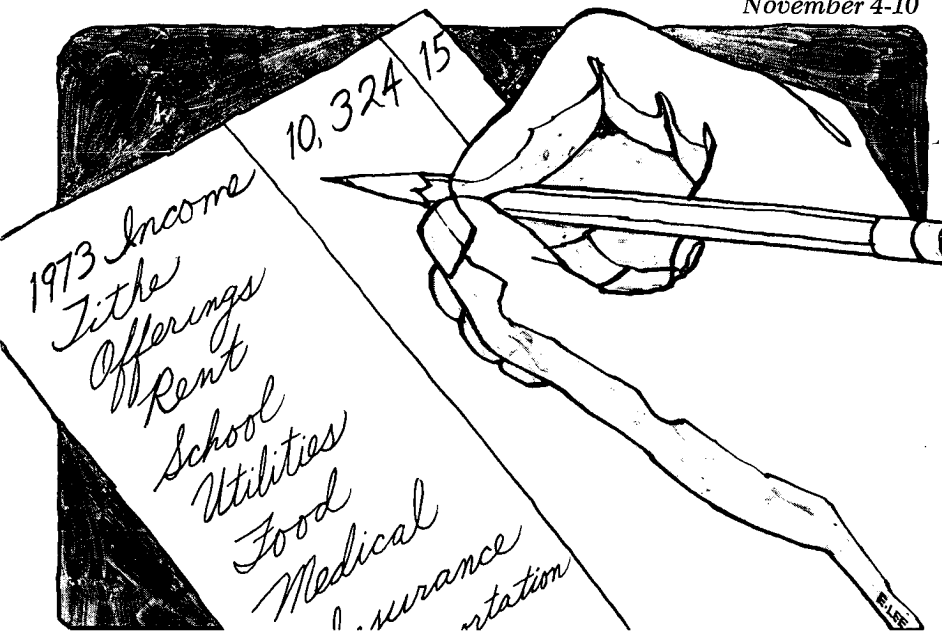 November 4-10
1973 Income 10,324 15
Tithe
Offerings
Rent
School
Utilities
Food
Medical
Insurance
rtation
E·LEE